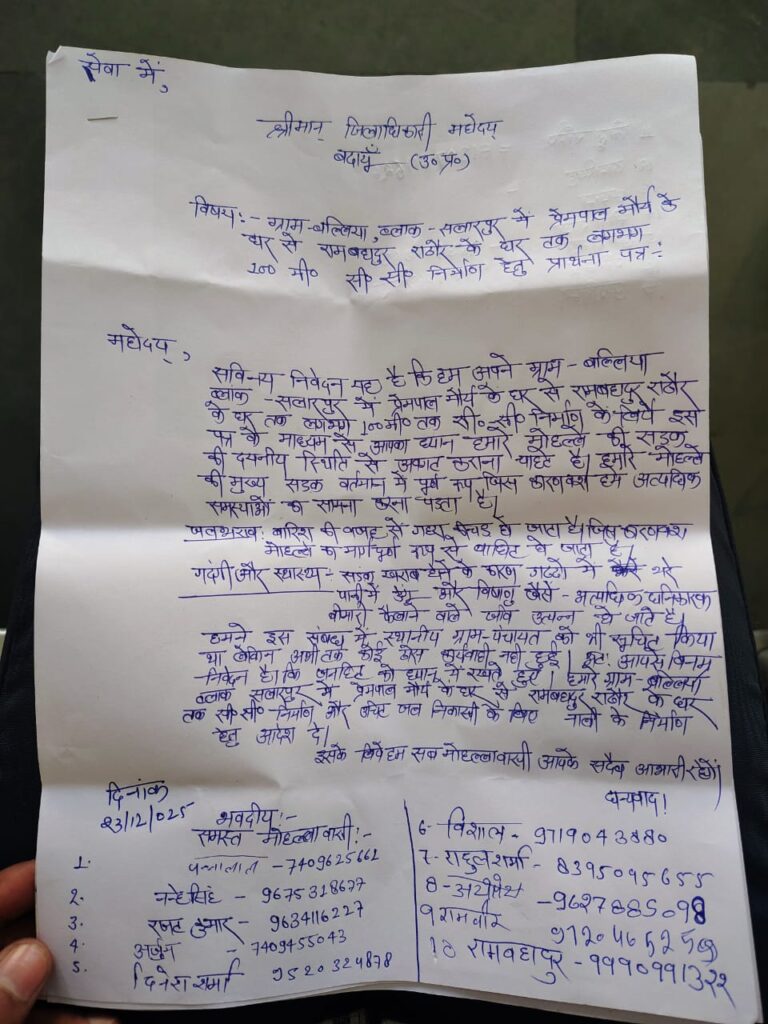 सेवा में,
श्रीमान् जिलाधिकारी महोदय
बदायूँ (उ० प्र०)
विषय:- ग्राम-बल्लिया, ब्लाक-सलारपुर में प्रेमपाल मौर्य के
घर से रामबहादुर राठौर के घर तक लगभग
100 मी० सी० सी० निर्माण हेतु प्रार्थना पत्र:
महोदय,
सविनय निवेदन यह है कि हम अपने ग्राम-बल्लिया
ब्लाक-सलारपुर में प्रेमपाल मौर्य के घर से रामबहादुर राठौर
के घर तक लगभग 100 मी० तक सी० सी० निर्माण के लिये इस
पत्र के माध्यम से आपका ध्यान हमारे मोहल्ले की सड़क
की दयनीय स्थिति से अवगत कराना चाहते है। हमारे मोहल्ले
की मुख्य सड़क वर्तमान में पूर्ण रूप जिस कारणवश हम अत्यधिक
समस्याओं का सामना करना पड़ता है।
जलभराव: बारिश की वजह से गहरा कीचड़ हो जाता है। जिस कारणवश
मोहल्ले का मार्ग पूर्ण रूप से बाधित हो जाता है।
गंदगी और स्वास्थ्य- सड़क खराब होने के कारण गड्डो में भरे
पानी में डेंगू और विषाणु जैसे- अत्यधिक हानिकारक
बीमारी फैलाने वाले जीव उत्पन्न हो जाते है।
हमने इस संबंध में स्थानीय ग्राम-पंचायत को भी सूचित किया
था लेकिन अभी तक कोई ठोस कार्यवाही नही हुई। अत: आपसे विनम्र
निवेदन है। कि जनहित को ध्यान में रखते हुए। हमारे ग्राम-बल्लिया
ब्लाक सलारपुर में प्रेमपाल मौर्य के घर से रामबहादुर राठौर के घर
तक सी० सी० निर्माण और उचित जल निकासी के लिए नाली के निर्माण
हेतु आदेश दे।
इसके लिये हम सब मोहल्लावासी आपके सदैव आभारी रहेंगे।
धन्यवाद।
दिनांक
23/12/025
भवदीय:-
समस्त मोहल्लावासी:-
1. पन्नालाल - 7409625661
2. - 9675318677
3. रजत कुमार - 9634116227
4. अर्जुन - 7409455043
5. दिनेश शर्मा 9520324878
6- विशाल - 9719043880
7- राहुल शर्मा - 8395095655
8- -9627885098
9 रामवीर
10 रामबहादुर - 9990991322